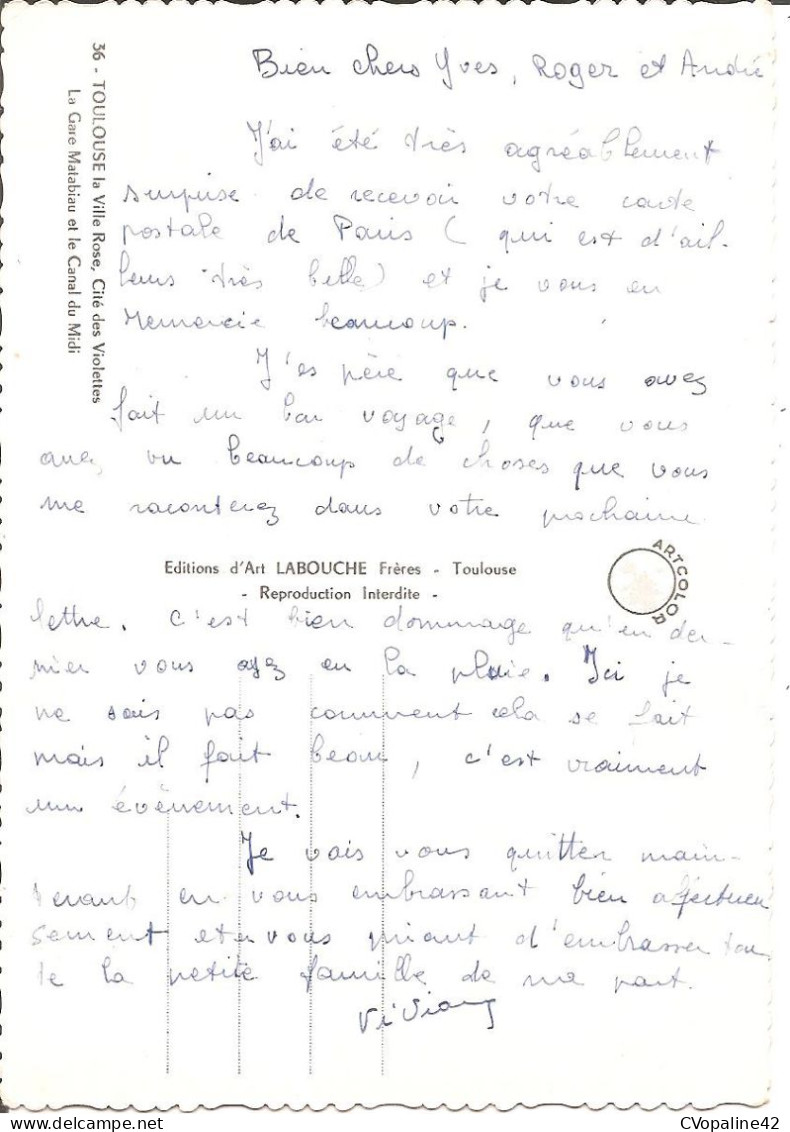 36 - TOULOUSE la Ville Rose, Cité des Violettes
La Gare Matabiau et le Canal du Midi
Bien chers Yves, Roger et André
J'ai été très agréablement
surprise de recevoir votre carte
postale de Paris ( qui est d'ail-
leurs très belle) et je vous en
remercie beaucoup.
J'espère que vous avez
fait un bon voyage, que vous
avez vu beaucoup de choses que vous
me raconterez dans votre prochaine
Editions d'Art LABOUCHE Frères - Toulouse
- Reproduction Interdite -
ARTCOLOR
lettre. C'est bien dommage qu'en der-
nier vous ayez eu la pluie. Ici je
ne sais pas comment cela se fait
mais il fait beau, c'est vraiment
un évènement.
Je vais vous quitter main-
tenant en vous embrassant bien affectueu
sement et en vous priant d'embrasser tou
te la petite famille de ma part.
Viviane
CVopaline42